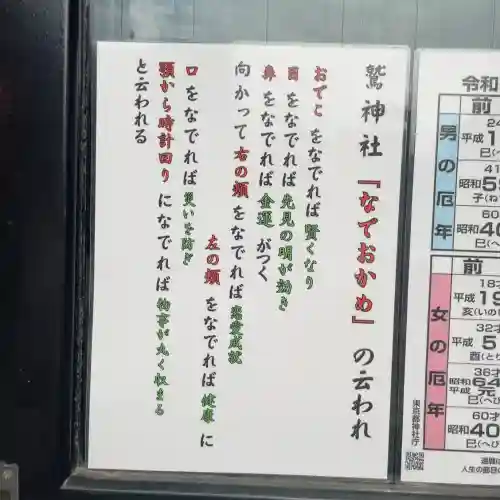 鷲神社『なでおかめ』の云われ
おでこをなでれば賢くなり
目をなでれば先見の明が効き
鼻をなでれば金運がつく
向かって右の頬をなでれば恋愛成就
左の頬をなでれば健康に
口をなでれば災いを防ぎ
顎から時計回りになでれば物事が丸く収まる
と云われる
令和
前
男の厄年
24
平成1
巳(へび
41
昭和58
子(ね
60才
昭和40
巳(へび
前
女の厄年
18才
平成19
亥(いのし
32才
平成5
酉(とり
36才
昭和64
平成元
巳(へび
60才
昭和40
巳(へび
東京都神社庁
人生の節目の